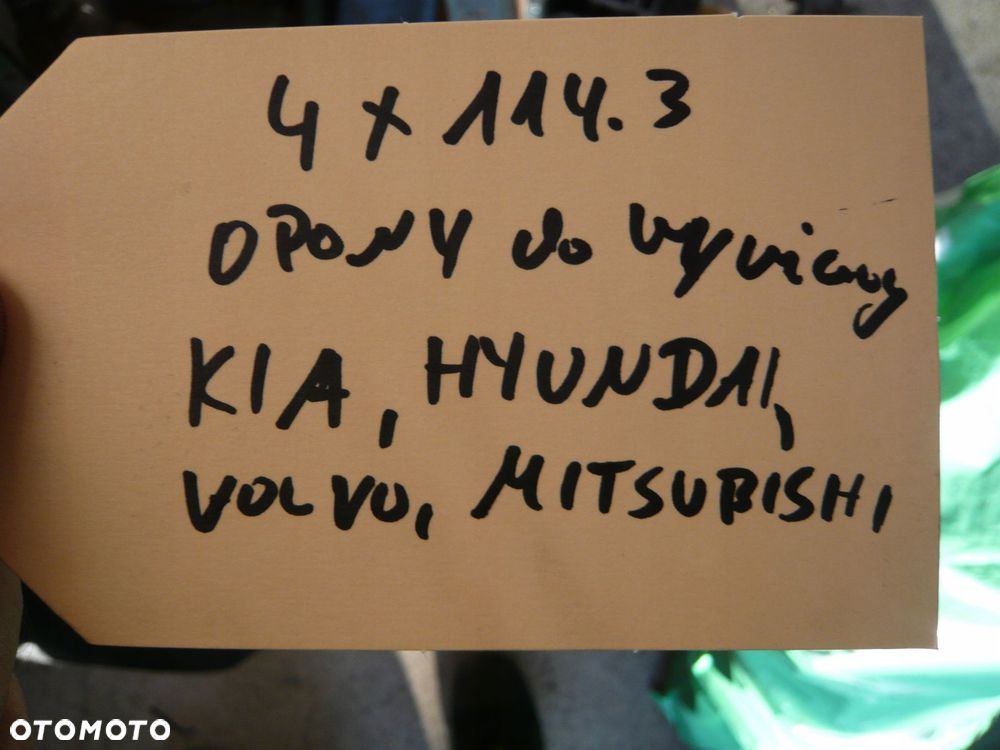 4 x 114.3
OPONY do wymiany
KIA, HYUNDAI,
VOLVO, MITSUBISHI
OTOMOTO